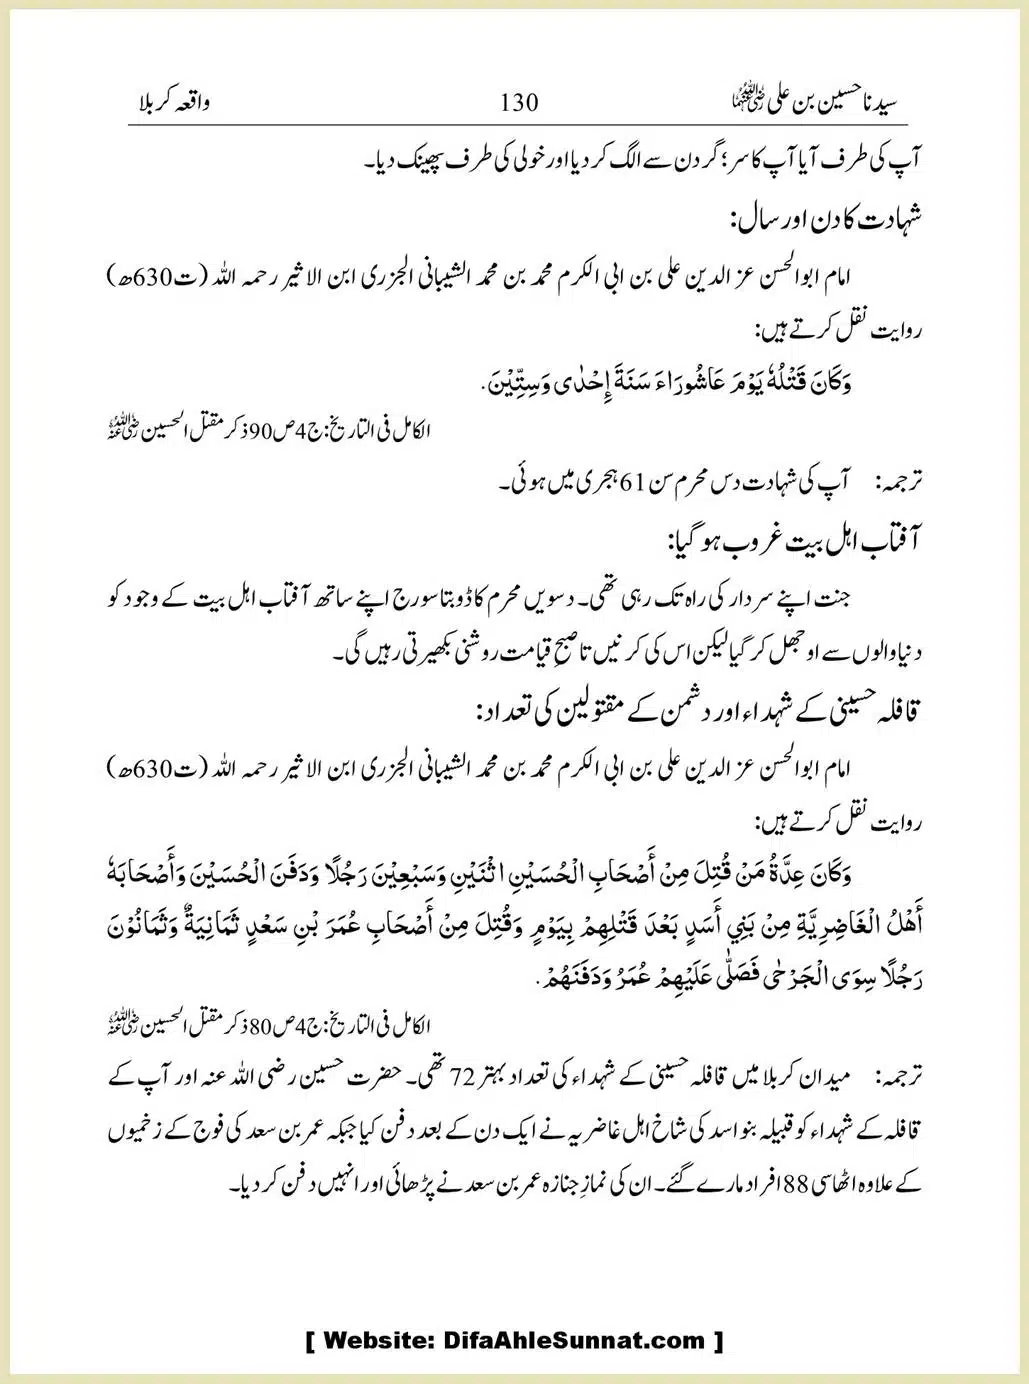 سیدنا حسین بن علی رضی اللہ عنہما 130 واقعہ کربلا
آپ کی طرف آیا آپ کا سر؛ گردن سے الگ کر دیا اور خولی کی طرف پھینک دیا۔
شہادت کا دن اور سال:
امام ابوالحسن عز الدین علی بن ابی الکرم محمد بن محمد الشیبانی الجزری ابن الاثیر رحمہ اللہ (ت630ھ)
روایت نقل کرتے ہیں:
وَكَانَ قَتْلُهٗ يَوْمَ عَاشُورَاءَ سَنَةَ إِحْدٰى وَسِتِّيْنَ.
الکامل فی التاریخ: ج4ص90ذکر مقتل الحسین رضی اللہ عنہ
ترجمہ: آپ کی شہادت دس محرم سن 61 ہجری میں ہوئی۔
آفتاب اہل بیت غروب ہو گیا:
جنت اپنے سردار کی راہ تک رہی تھی۔ دسویں محرم کا ڈوبتا سورج اپنے ساتھ آفتاب اہل بیت کے وجود کو
دنیا والوں سے اوجھل کر گیا لیکن اس کی کرنیں تا صبحِ قیامت روشنی بکھیرتی رہیں گی۔
قافلہ حسینی کے شہداء اور دشمن کے مقتولین کی تعداد:
امام ابوالحسن عز الدین علی بن ابی الکرم محمد بن محمد الشیبانی الجزری ابن الاثیر رحمہ اللہ (ت630ھ)
روایت نقل کرتے ہیں:
وَكَانَ عِدَّةُ مَنْ قُتِلَ مِنْ أَصْحَابِ الْحُسَيْنِ اثْنَيْنِ وَسَبْعِيْنَ رَجُلًا وَدَفَنَ الْحُسَيْنَ وَأَصْحَابَهٗ
أَهْلُ الْغَاضِرِيَّةِ مِنْ بَنِي أَسَدٍ بَعْدَ قَتْلِهِمْ بِيَوْمٍ وَقُتِلَ مِنْ أَصْحَابِ عُمَرَ بْنِ سَعْدٍ ثَمَانِيَةٌ وَثَمَانُوْنَ
رَجُلًا سِوَى الْجَرْحٰى فَصَلّٰى عَلَيْهِمْ عُمَرُ وَدَفَنَهُمْ.
الکامل فی التاریخ: ج4ص80ذکر مقتل الحسین رضی اللہ عنہ
ترجمہ: میدان کربلا میں قافلہ حسینی کے شہداء کی تعداد بہتر 72 تھی۔ حضرت حسین رضی اللہ عنہ اور آپ کے
قافلہ کے شہداء کو قبیلہ بنو اسد کی شاخ اہل غاضریہ نے ایک دن کے بعد دفن کیا جبکہ عمر بن سعد کی فوج کے زخمیوں
کے علاوہ اٹھاسی 88 افراد مارے گئے۔ ان کی نمازِ جنازہ عمر بن سعد نے پڑھائی اور انہیں دفن کر دیا۔
[ Website: DifaAhleSunnat.com ]